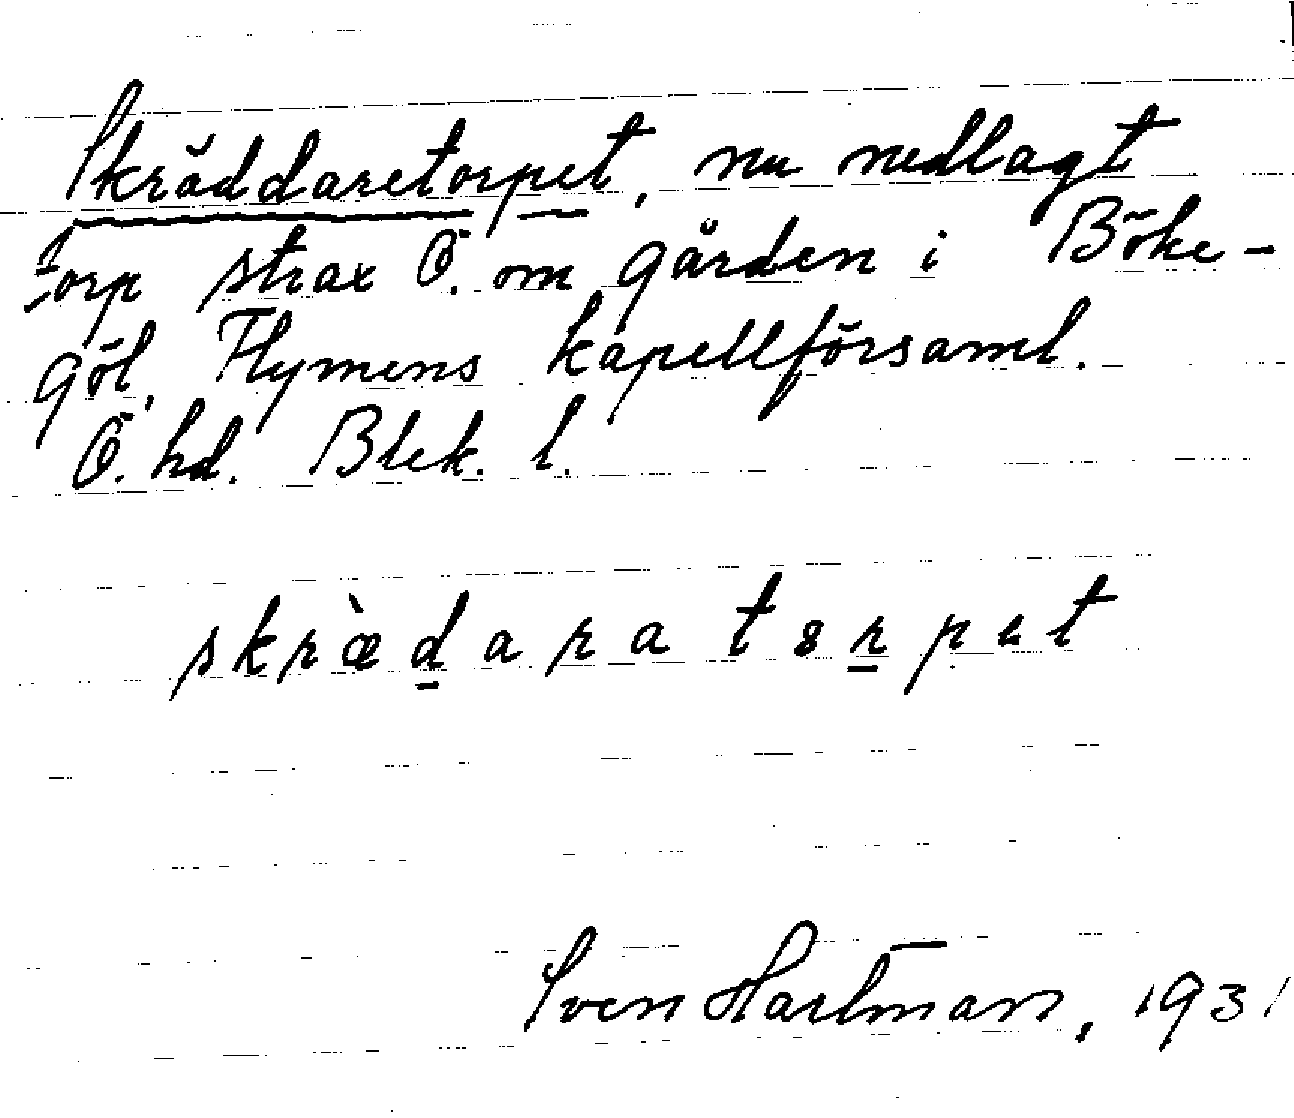 Skräddaretorpet, nu nedlagt
torp strax Ö. om gården i Böke-
göl, Flymens kapellförsaml.
Ö. hd. Blek. l.
skræ̀d̲arats̲r̲pet
Sven Hartman, 1931